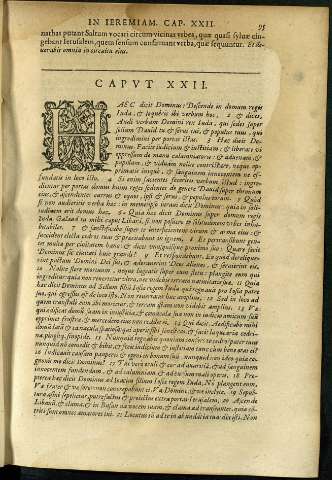 IN IEREMIAM. CAP. XXII. 95
nathas putant Saltum vocari circum vicinas vrbes, quæ quasi syluæ cingebant
Ierusalem, quem sensum confirmant verba, quæ sequuntur. Et deuorabit
omnia in circuitu eius.
CAPVT XXII.
HAEC dicit Dominus: Descende in domum regis
Iuda, & loqueris ibi verbum hoc, 2 & dices,
Audi verbum Domini rex Iuda, qui sedes super
solium Dauid tu & serui tui, & populus tuus, qui
ingredimini per portas istas. 3 Hæc dicit Dominus:
Facite iudicium & iustitiam: & liberate vi
oppressum de manu calumniatoris: & aduenam, &
pupillum, & viduam nolite contristare, neque opprimatis
iniquè, & sanguinem innocentem ne effundatis
in loco isto. 4 Si enim facientes feceritis verbum istud: ingredientur
per portas domus huius reges sedentes de genere Dauid super thronum
eius, & ascendentes currus & equos, ipsi & serui, & populus eorum. 5 Quòd
si non audieritis verba hæc: in memetipso iuraui dicit Dominus: quia in solitudinem
erit domus hæc. 6 Quia hæc dicit Dominus super domum regis
Iuda Galaad tu mihi caput Libani, si non posuero te solitudinem vrbes inhabitabiles.
7 & sanctificabo super te interficientem virum & arma eius: &
succident electas cedros tuas & præcipitabunt in ignem. 8 Et pertransibunt gentes
multæ per ciuitatem hanc: & dicet vnusquisque proximo suo: Quare fecit
Dominus sic ciuitati huic grandi? 9 Et respondebunt: Eo quòd dereliquerint
pactum Domini Dei sui, & adorauerint Deos alienos, & seruierint eis.
10 Nolite flere mortuum, neque lugeatis super eum fletu: plangite eum qui
egreditur, quia non reuertetur vltra, nec videbit terram natiuitatis suæ. 11 Quia
hæc dicit Dominus ad Sellum filium Iosiæ regem Iuda qui regnauit pro Iosia patre
suo, qui egressus est de loco isto. Non reuertetur huc amplius, 12 Sed in loco ad
quem transtuli eum ibi morietur, & terram istam non videbit amplius. 13 Væ
qui ædificat domum suam in iniustitia, & cœnacula sua non in iudicio, amicum suum
opprimet frustra, & mercedem eius non reddet ei. 14 Qui dicit, Aedificabo mihi
domum latam & cœnacula spatiosa: qui aperit sibi fenestras, & facit laquearia cedrina,
pingitq; sinopide. 15 Nunquid regnabis quoniam confers te cedro? pater tuus
nunquid non comedit & bibit, & fecit iudicium & iustitiam tunc cum bene erat ei?
16 Iudicauit causam pauperis & egeni in bonum suum: nunquid non ideo quia cognouit
me dicit Dominus? 17 Tui verò oculi & cor ad auaritiam, & ad sanguinem
innocentem fundendum, & ad calumniam & ad cursum mali operis. 18 Propterea
hæc dicit Dominus ad Ioacim filium Iosiæ regem Iuda, Non plangent eum,
Væ frater & væ soror: non concrepabunt ei: Væ Domine, & væ inclyte. 19 Sepultura
asini sepelietur, putrefactus & proiectus extra portas Ierusalem. 20 Ascende
Libanum, & clama, & in Basan da vocem tuam, & clama ad transeuntes, quia contriti
sunt omnes amatores tui. 21 Locutus sum ad te in abundantia tua: dixisti, Non